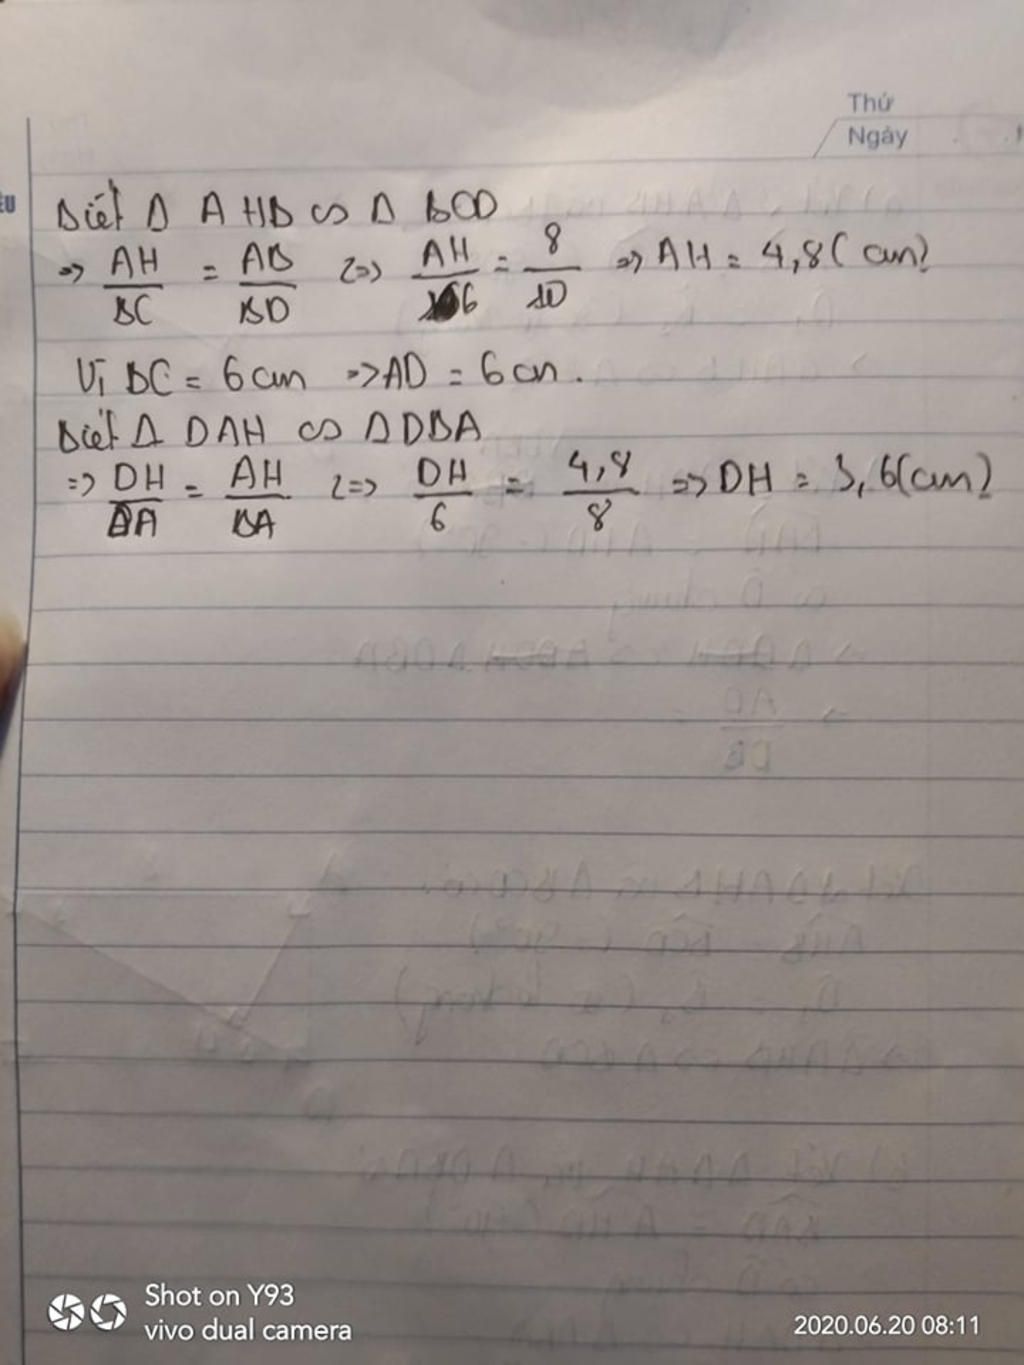 Thứ
Ngày
Biết Δ AHB ∽ Δ BCD
=> AH/BC = AB/BD <=> AH/6 = 8/10 => AH = 4,8 (cm)
Vì BC = 6 cm => AD = 6 cm.
Biết Δ DAH ∽ Δ DBA
=> DH/DA = AH/BA <=> DH/6 = 4,8/8 => DH = 3,6 (cm)
Shot on Y93
vivo dual camera
2020.06.20 08:11